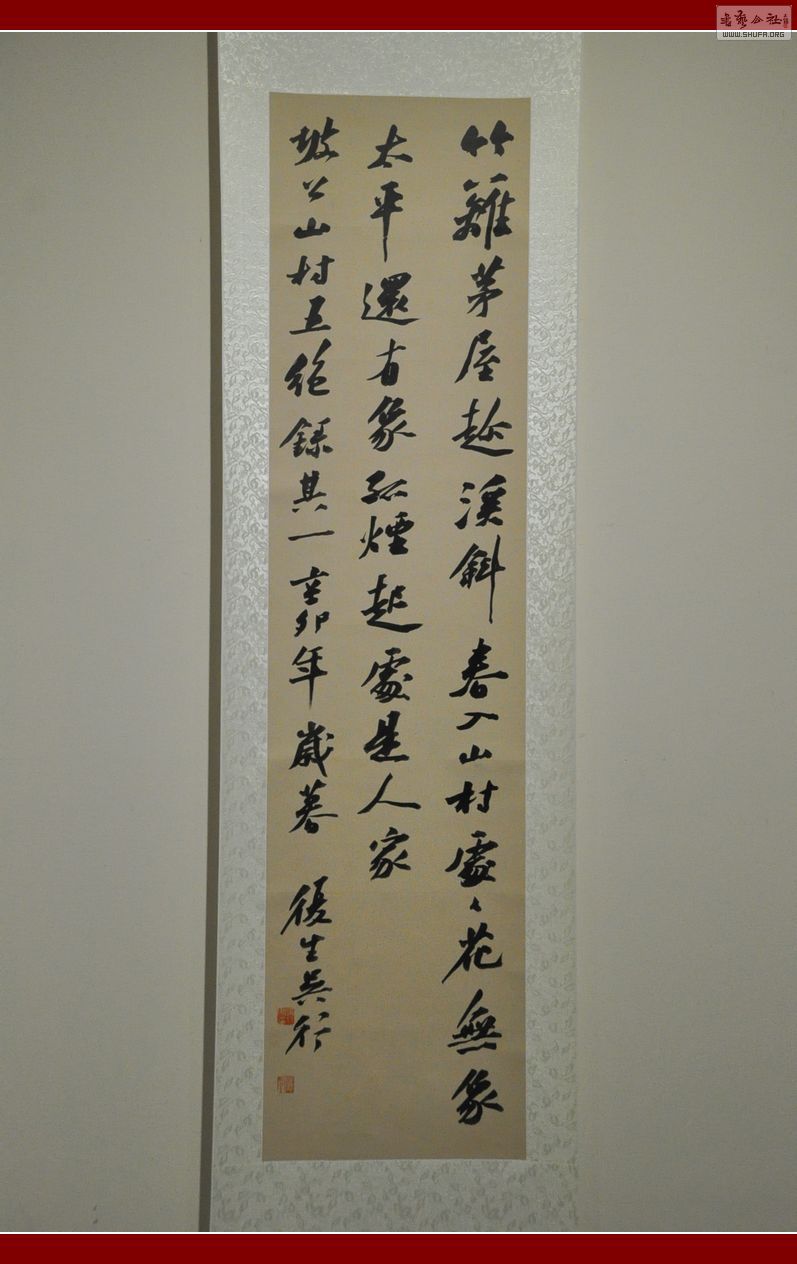 書藝公社
WWW.SHUFA.ORG
竹籬茅屋趁溪斜春入山村處々花無象
太平還有象孤煙起處是人家
坡公山村五絕錄其一辛卯年歲暮 後生吳行